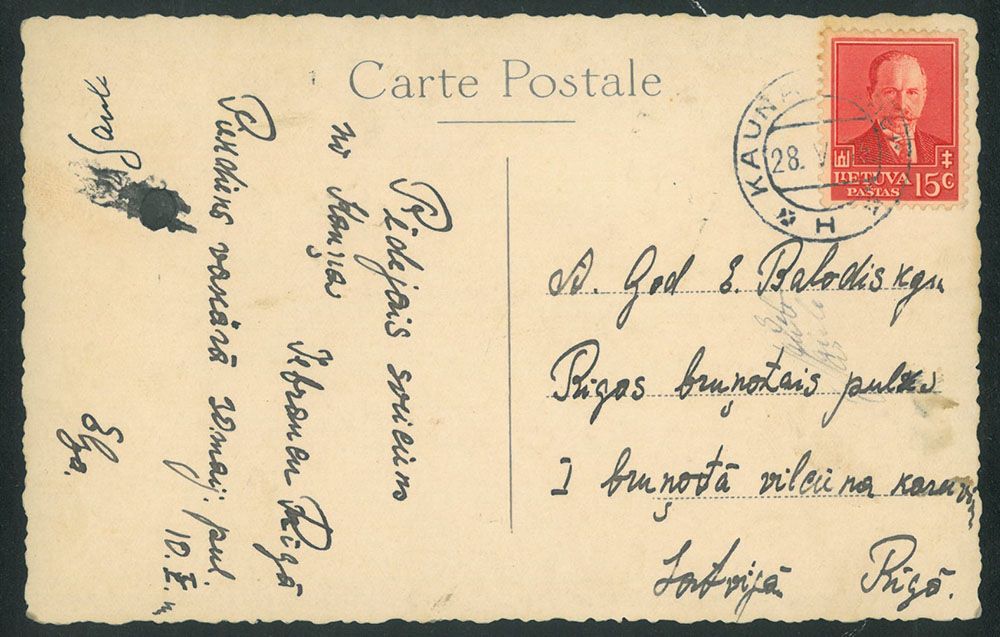 Carte Postale
KAUNA
28. V
H
LIETUVA
PAŠTAS 15c
Pēdējais sveiciens
no Kauņa
Iebraucu Rīgā
vakārā 30. maij. pul.
10.
A. God E. Balodis kgu
Rīgas bruņotais pulks
I bruņotā vilciena
Latvijā Rīgā.